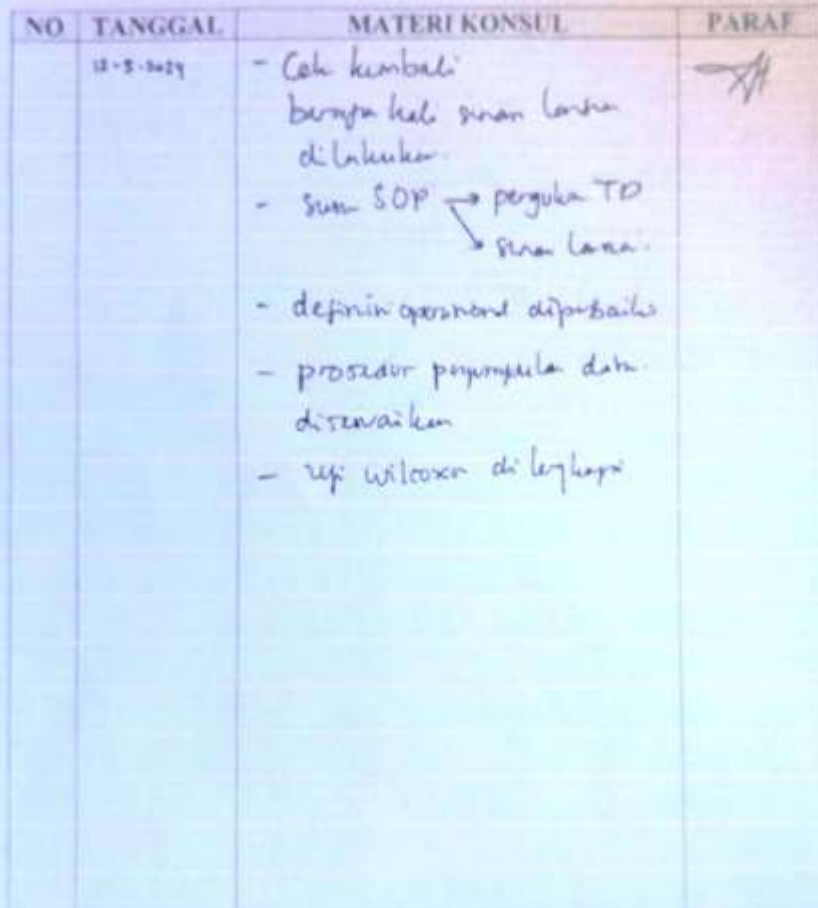 NO TANGGAL MATERI KONSUL PARAF
12-5-2024 - Cek kembali
berapa kali senam lansia
dilakukan.
- Susun SOP → pengukuran TD
↘ senam lansia.
- definisi operasional diperbaiki
- prosedur pengumpulan data
disesuaikan
- uji wilcoxon dilengkapi